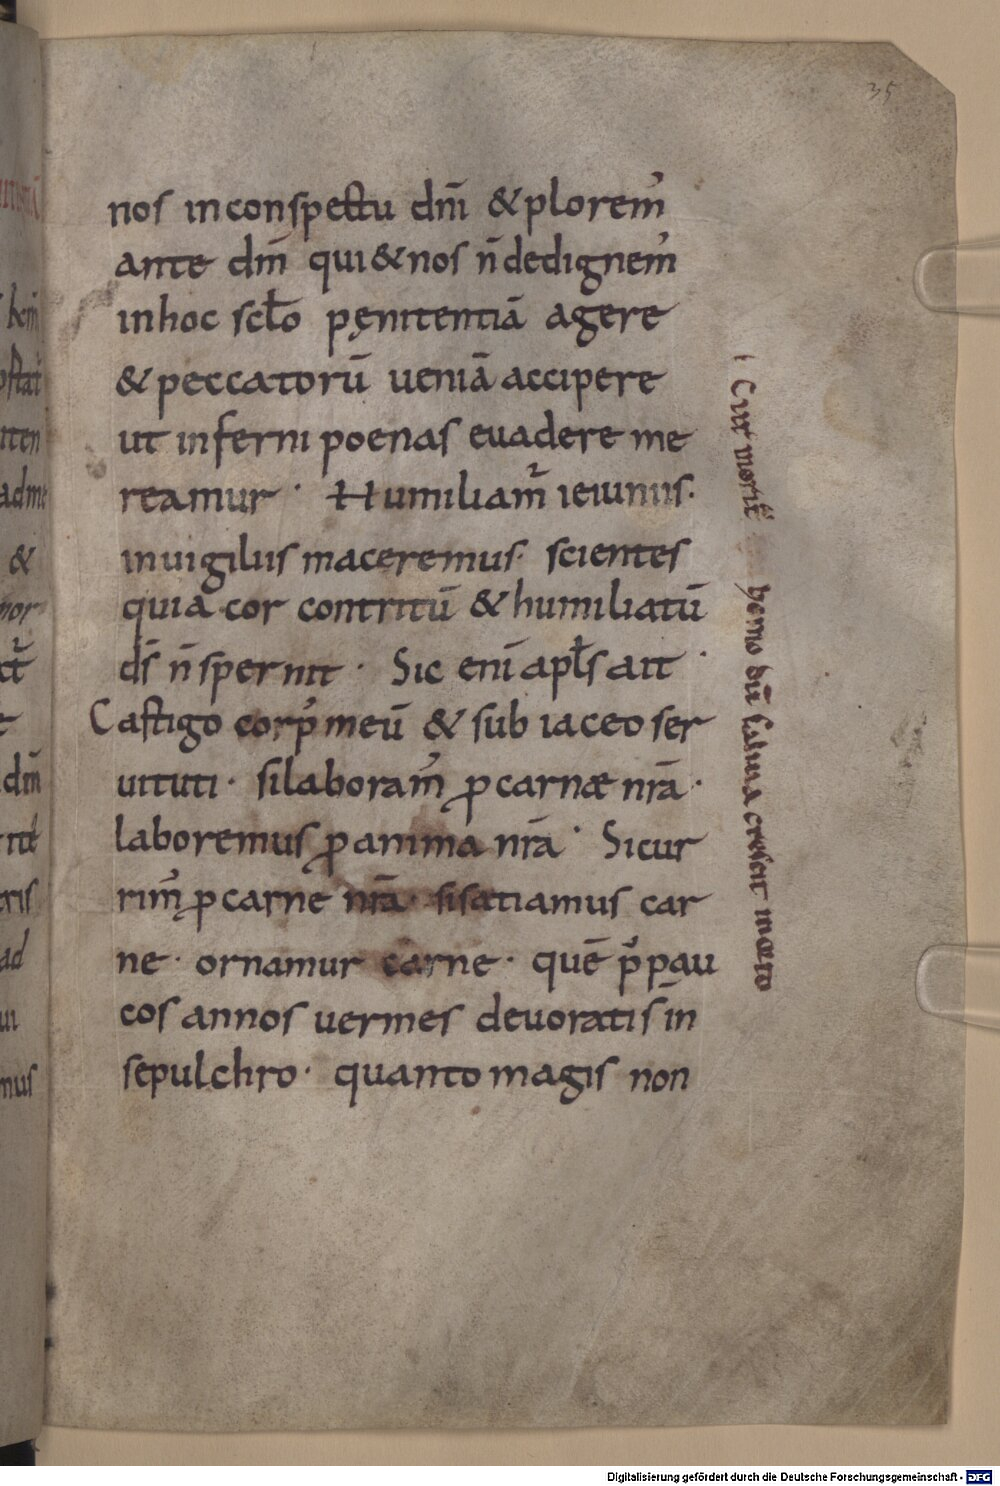 35
nos inconspectu dnī &plorem᾽
ante dm̄ qui&nos n̄ dedignem᾽
inhoc scl̄o pęnitentiā agere
& peccatorū ueniā accipere
ut inferni poenas euadere me
reamur · Humiliam᾽ ieiuniis·
inuigiliis maceremus· scientes
quia cor contritū & humiliatū
ds̄ n̄ spernit · Sic enī apl̄s ait ·
Castigo corp᾽ meū & sub iaceo ser
uituti · silaboram᾽ ꝓcarnæ nrā ·
laboremus ꝓanima nrā · Sicur
rim᾽ ꝓcarne nrā · sisatiamus car
ne · ornamur carne · quē p᾽ pau
cos annos uermes deuoratis in
sepulchro · quanto magis non
i Cur morit᾽ homo dū salvia crescit in orto
Digitalisierung gefördert durch die Deutsche Forschungsgemeinschaft - DFG